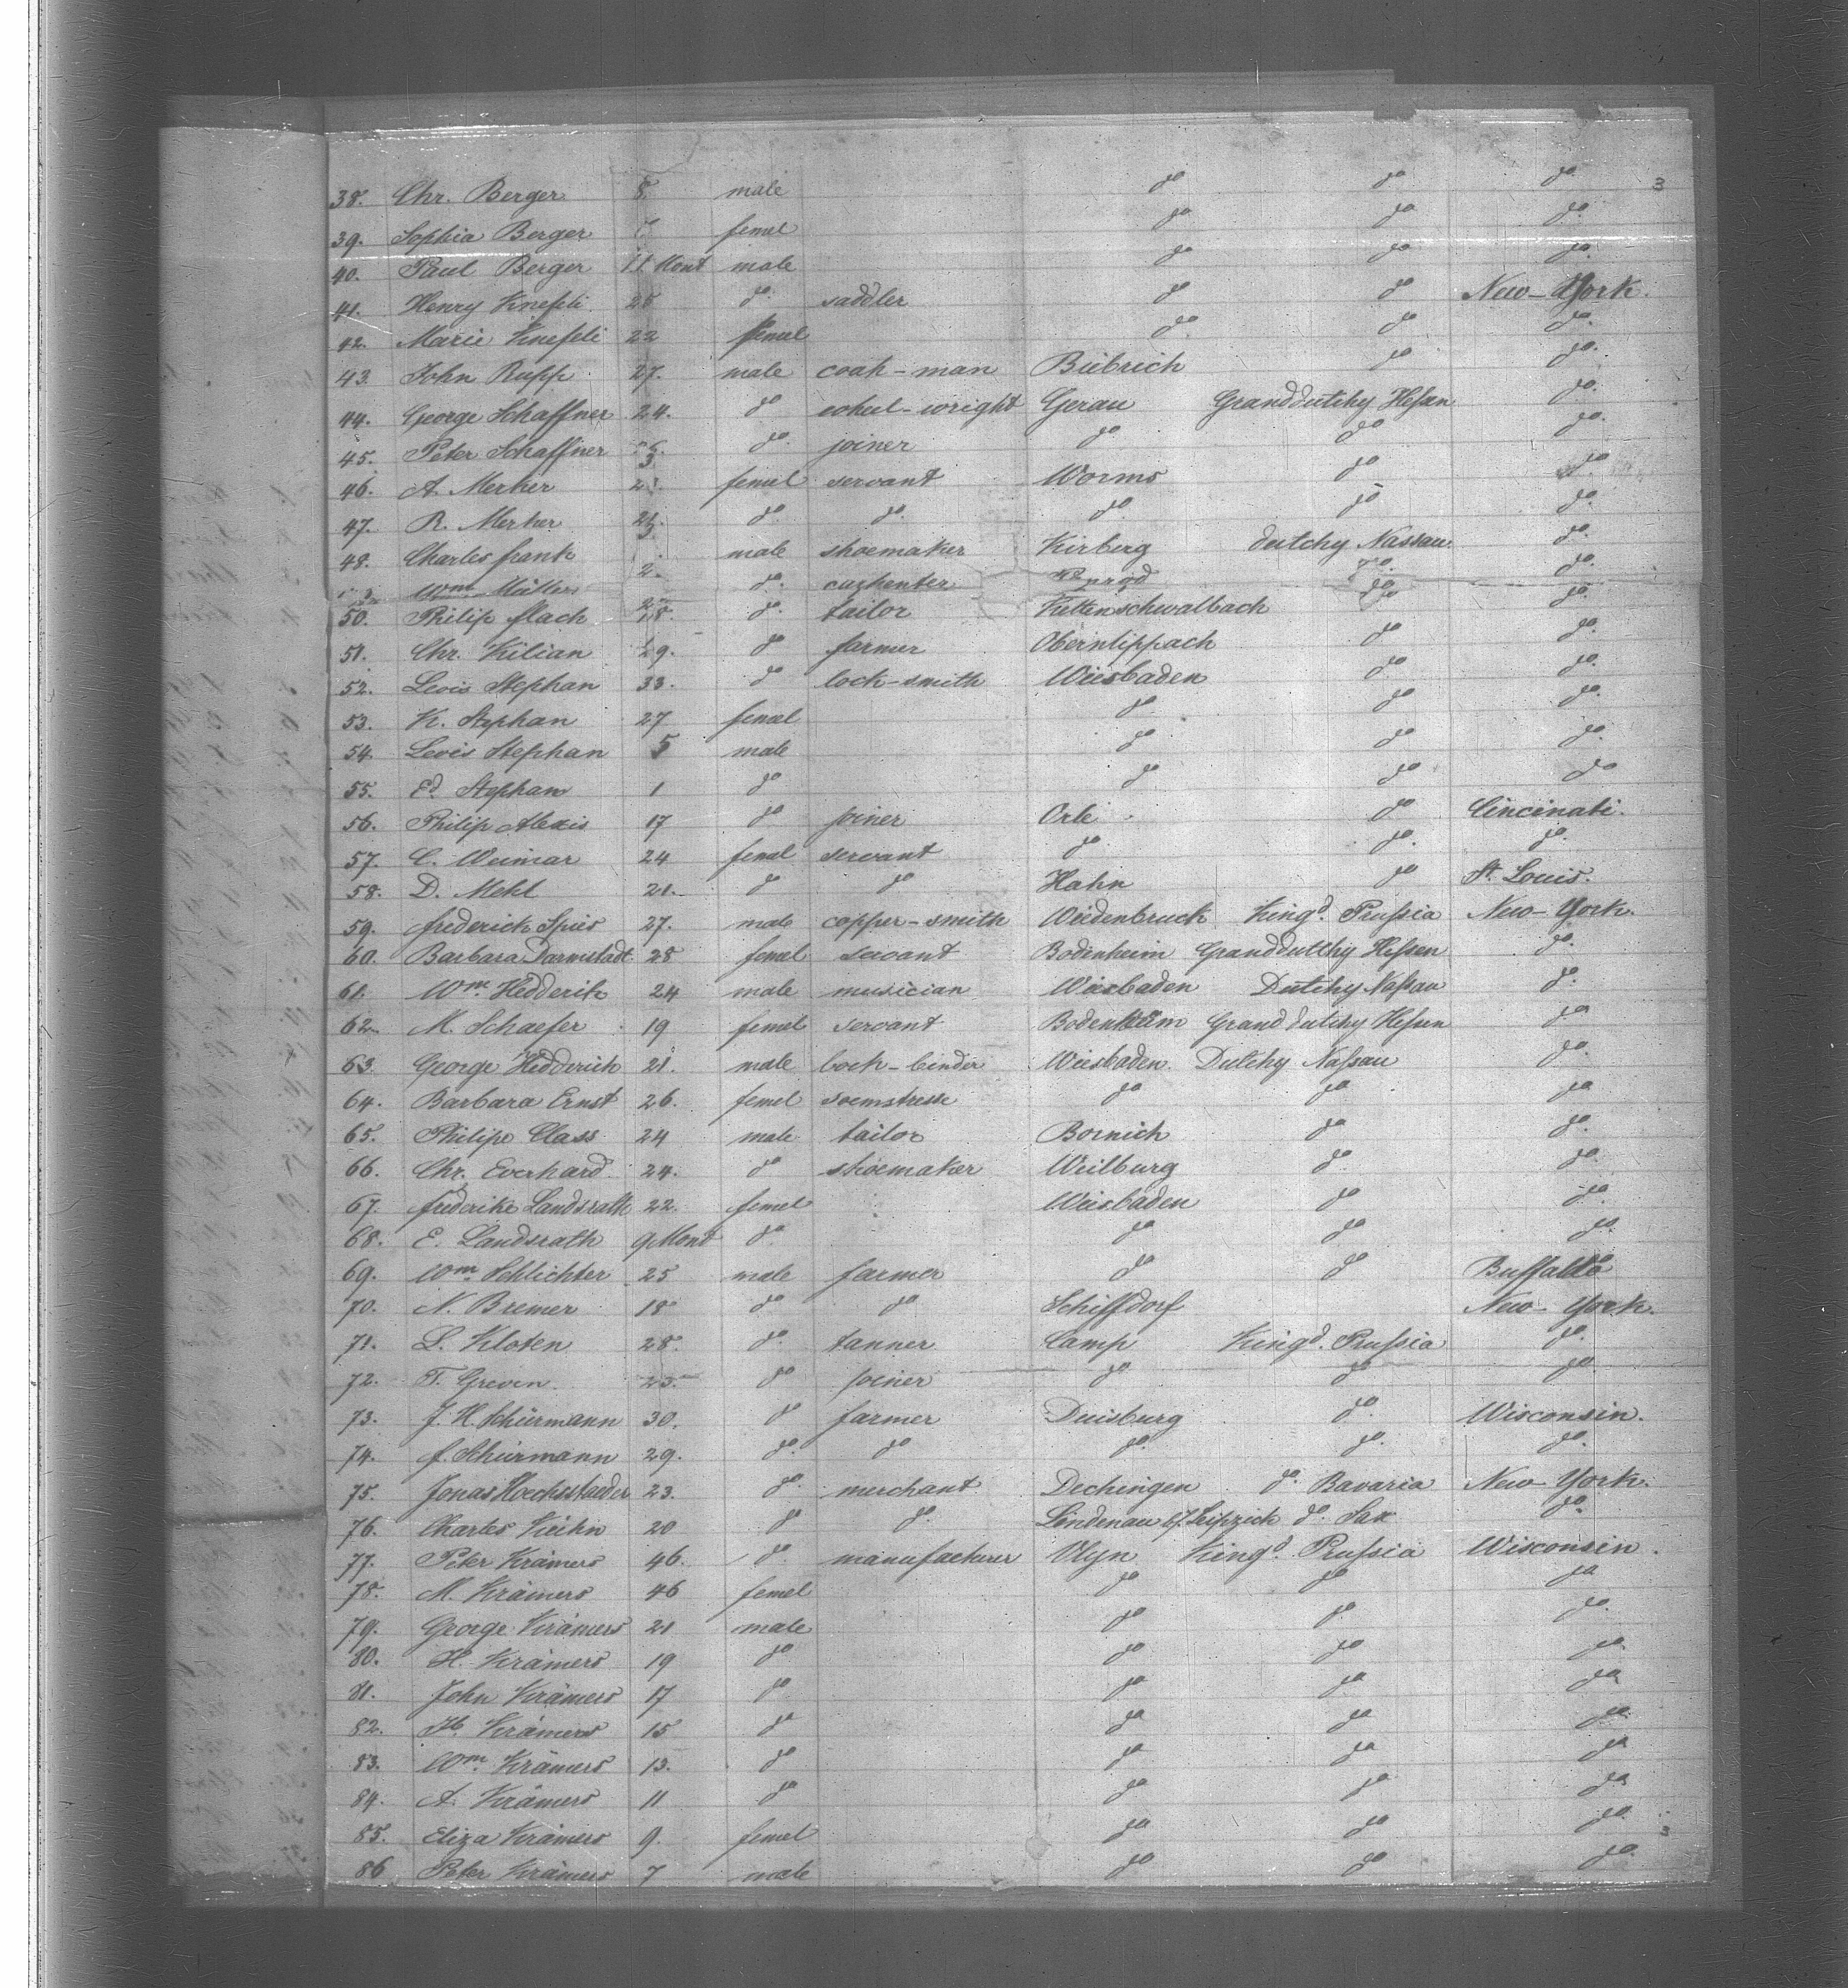 38. Chr. Berger 8. male do do do. 3
39. Sophia Berger femel do do do.
40. Paul Berger 11 Mont male do do do.
41. Henry Knefeli 25 do. saddler do do New-York.
42. Marie Knefeli 22 femel do. do do.
43. John Rupp 27. male coah-man Biebrich do do.
44. George Schaffner 24. do wheel-wright Gerau Granddutchy Hessen do.
45. Peter Schaffner do. joiner do do do.
46. A. Merker femel servant Worms do do
47. R. Merker do. do. do. do do.
48. Charles frank male shoemaker Kirberg dutchy Nassau. do.
Wm Müller do. carhenter do. do.
50. Philip flach 28. do. tailor Kettenschwalbach do do.
51. Chr. Kilian 29. do farmer Oberntippach do do.
52. Levis Stephan 33. do lock-smith Wiesbaden do do.
53. K. Stephan 27 femel do do do.
54. Levis Stephan 5 male do do do.
55. Ed. Stephan 1 do do do do
56. Philip Alexis 17 do joiner Orle do Cincinati.
57. C. Weimar 24 femel servant do. do. do.
58. D. Mehl 21. do do Hahn do St. Louis.
59. frederick Spies 27. male copper-smith Wiedenbruck Kingd. Prussia New-York.
60. Barbara Darmstadt 28 femel servant Bodenheim Granddutchy Hessen do.
61. Wm. Hedderik 24 male musician Wiesbaden Dutchy Nassau do.
62. M. Schaefer 19 femel servant Bodenheim Grand dutchy Hessen do
63. George Hedderich 21. male bock-binder Wiesbaden Dutchy Nassau do.
64. Barbara Ernst 26. femel soemstresse do do do
65. Philipe Class 24 male tailor Bornich do do.
66. Chr. Everhard 24. do shoemaker Weilburg do. do.
67. frederike Landsrath 22. femel Wiesbaden do do.
68. E. Landsrath 9 Mond do. do do do.
69. Wm. Schlichter 25 male farmer do do Buffaloe
70. N. Bremer 18 do do Schiffdorf New-York.
71. L. Kloten 28. do. tanner Camp Kingd. Prussia do.
72. T. Greven 23. do joiner do do do
73. J. H. Schürmann 30. do farmer Duisburg do. Wisconsin.
74. f. Schürmann 29. do. do do. do. do.
75. Jonas Hoechstaeder 23. do. merchant Dechingen do. Bavaria New-York.
76. Charles Kuhn 20 do do. Lindenau b/ Leipzich do. Sax do.
77. Peter Krämers 46. do. manufacturer Vlyn Kingd. Prussia Wisconsin.
78. M. Krämers 46 femel do do do
79. George Krämers 21 male do do. do.
80. H. Krämers 19 do do do do
81. John Krämers 17 do do do do
82. Hb. Krämers 15 do do do do.
83. Wm. Krämers 13. do do do do
84. A. Krämers 11 do do do do
85. Eliza Krämers 9. femel do do do.
86 Peter Krämers 7 male do do do.